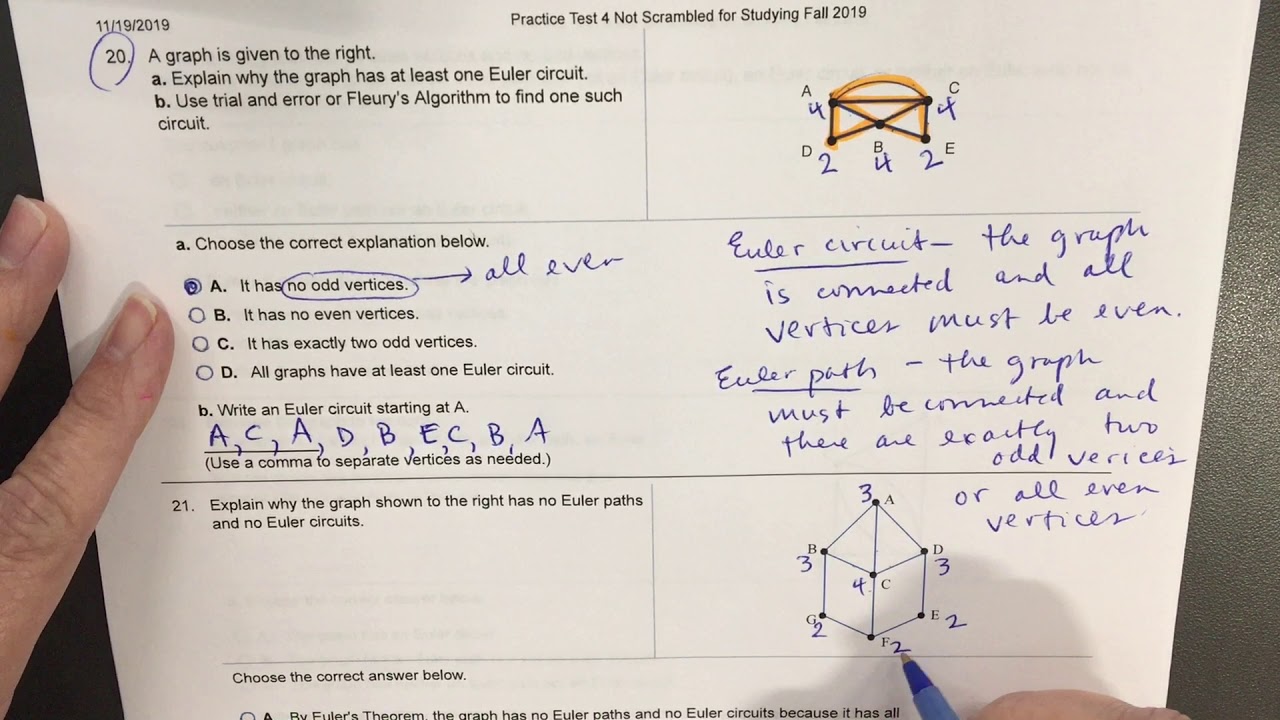 11/19/2019
Practice Test 4 Not Scrambled for Studying Fall 2019
20. A graph is given to the right.
a. Explain why the graph has at least one Euler circuit.
b. Use trial and error or Fleury's Algorithm to find one such
circuit.
A C
4 4
D B E
2 4 2
a. Choose the correct explanation below.
A. It has no odd vertices. → all even
B. It has no even vertices.
C. It has exactly two odd vertices.
D. All graphs have at least one Euler circuit.
b. Write an Euler circuit starting at A.
A, C, A, D, B, E, C, B, A
(Use a comma to separate vertices as needed.)
Euler circuit – the graph
is connected and all
vertices must be even.
Euler path – the graph
must be connected and
there are exactly two
odd verices
or all even
vertices
21. Explain why the graph shown to the right has no Euler paths
and no Euler circuits.
3 A
B D
3 3
4 C
G E 2
2
F 2
Choose the correct answer below.
A. By Euler's Theorem, the graph has no Euler paths and no Euler circuits because it has all